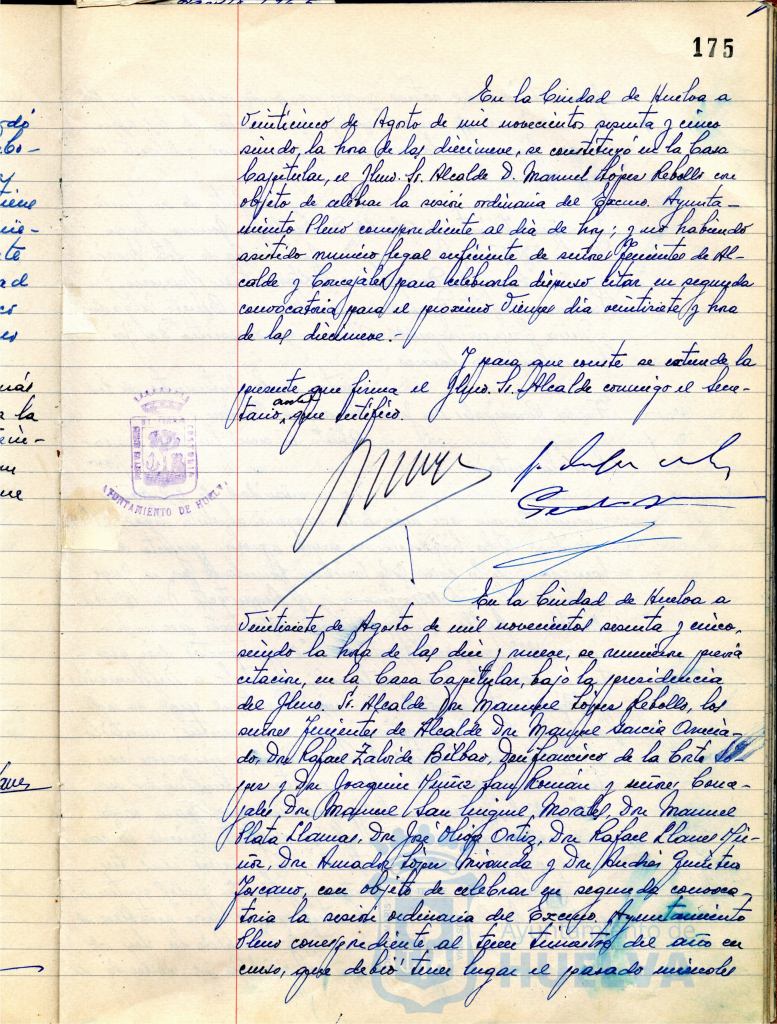 175
En la Ciudad de Huelva a
veinticinco de Agosto de mil novecientos sesenta y cinco
siendo, la hora de las diecinueve, se constituyó en la Casa
Capitular, el Ilmo. Sr. Alcalde D. Manuel López Rebollo con
objeto de celebrar la sesión ordinaria del Excmo. Ayunta-
miento Pleno correspondiente al dia de hoy; y no habiendo
asistido numero legal suficiente de señores Tenientes de Al-
calde y Concejales para celebrarla dispuso citar en segunda
convocatoria para el proximo Viernes dia veintisiete y hora
de las diecinueve.-
Y para que conste se extiende la
presente que firma el Ilmo. Sr. Alcalde conmigo el Secre-
tario, que certifico.
AYUNTAMIENTO DE HUELVA
En la Ciudad de Huelva a
Veintisiete de Agosto de mil novecientos sesenta y cinco,
siendo la hora de las diez y nueve, se reunieron previa
citación, en la Casa Capitular, bajo la presidencia
del Ilmo. Sr. Alcalde Don Manuel López Rebollo, los
señores Tenientes de Alcalde Don Manuel Garcia
do, Don Rafael Bilbao, Don Francisco de la Corte
y Don Joaquin Muñiz San Román y señores Conce-
jales, Don Manuel San Miguel Morales, Don Manuel
Plata Llamas, Don Jose Oliva Ortiz, Don Rafael Llanes Mu-
ñoz, Don Amador López Miranda y Don Andres Quintero
Toscano, con objeto de celebrar en segunda convoca-
toria la sesión ordinaria del Excmo. Ayuntamiento
Pleno correspondiente al tercer trimestre del año en
curso, que debió tener lugar el pasado miercoles
Ayuntamiento de
HUELVA